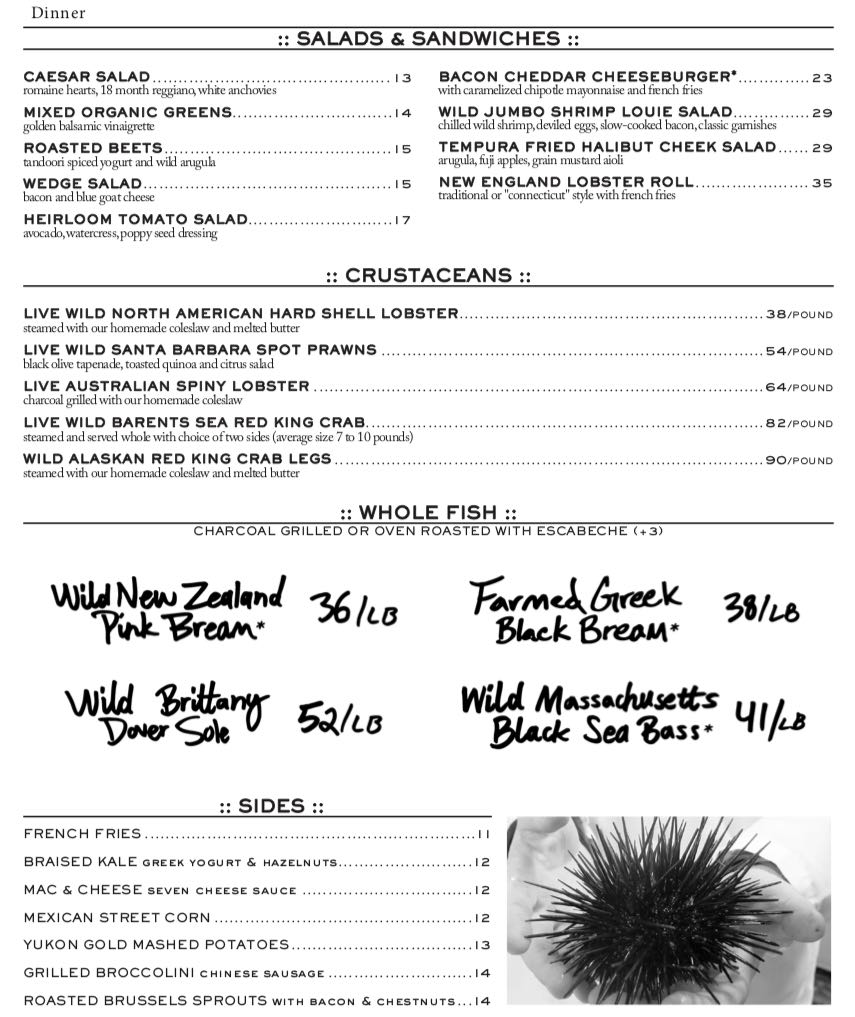 Dinner
:: SALADS & SANDWICHES ::
CAESAR SALAD.......................................13
romaine hearts, 18 month reggiano, white anchovies
MIXED ORGANIC GREENS..........................14
golden balsamic vinaigrette
ROASTED BEETS.....................................15
tandoori spiced yogurt and wild arugula
WEDGE SALAD............................................15
bacon and blue goat cheese
HEIRLOOM TOMATO SALAD........................17
avocado, watercress, poppy seed dressing
BACON CHEDDAR CHEESEBURGER*............23
with caramelized chipotle mayonnaise and french fries
WILD JUMBO SHRIMP LOUIE SALAD............29
chilled wild shrimp, deviled eggs, slow-cooked bacon, classic garnishes
TEMPURA FRIED HALIBUT CHEEK SALAD.....29
arugula, fuji apples, grain mustard aioli
NEW ENGLAND LOBSTER ROLL...................35
traditional or "connecticut" style with french fries
:: CRUSTACEANS ::
LIVE WILD NORTH AMERICAN HARD SHELL LOBSTER..................................................38/POUND
steamed with our homemade coleslaw and melted butter
LIVE WILD SANTA BARBARA SPOT PRAWNS ..............................................................54/POUND
black olive tapenade, toasted quinoa and citrus salad
LIVE AUSTRALIAN SPINY LOBSTER .........................................................................64/POUND
charcoal grilled with our homemade coleslaw
LIVE WILD BARENTS SEA RED KING CRAB.................................................................82/POUND
steamed and served whole with choice of two sides (average size 7 to 10 pounds)
WILD ALASKAN RED KING CRAB LEGS......................................................................90/POUND
steamed with our homemade coleslaw and melted butter
:: WHOLE FISH ::
CHARCOAL GRILLED OR OVEN ROASTED WITH ESCABECHE (+3)
Wild New Zealand
Pink Bream* 36/LB
Farmed Greek
Black Bream* 38/LB
Wild Brittany
Dover Sole 52/LB
Wild Massachusetts
Black Sea Bass* 41/LB
:: SIDES ::
FRENCH FRIES......................................................11
BRAISED KALE GREEK YOGURT & HAZELNUTS......................12
MAC & CHEESE SEVEN CHEESE SAUCE ............................12
MEXICAN STREET CORN ..........................................12
YUKON GOLD MASHED POTATOES..............................13
GRILLED BROCCOLINI CHINESE SAUSAGE ........................14
ROASTED BRUSSELS SPROUTS WITH BACON & CHESTNUTS...14